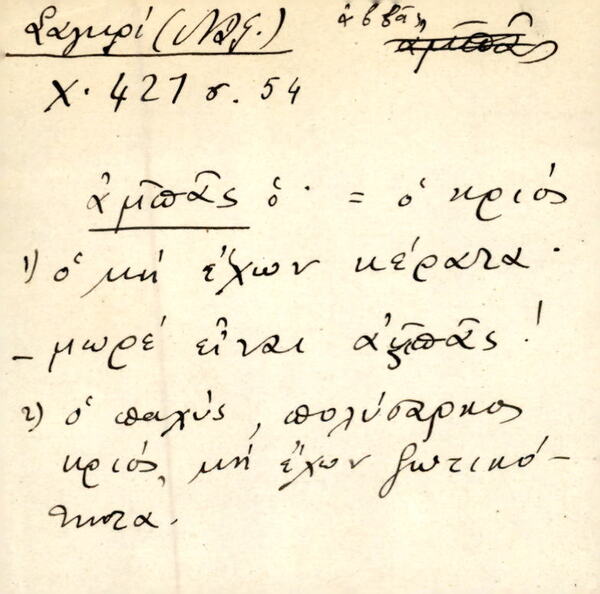 Ζαγορί ἀββᾶς
χ. 427 σ. 54
ἀμπᾶς ὁ· = ὁ κριός
1) ὁ μή ἔχων κέρατα.
– μωρέ εἶναι ἀμπᾶς!
2) ὁ παχύς, πολύσαρκος
κριός, μή ἔχων ζωτικό-
τητα.